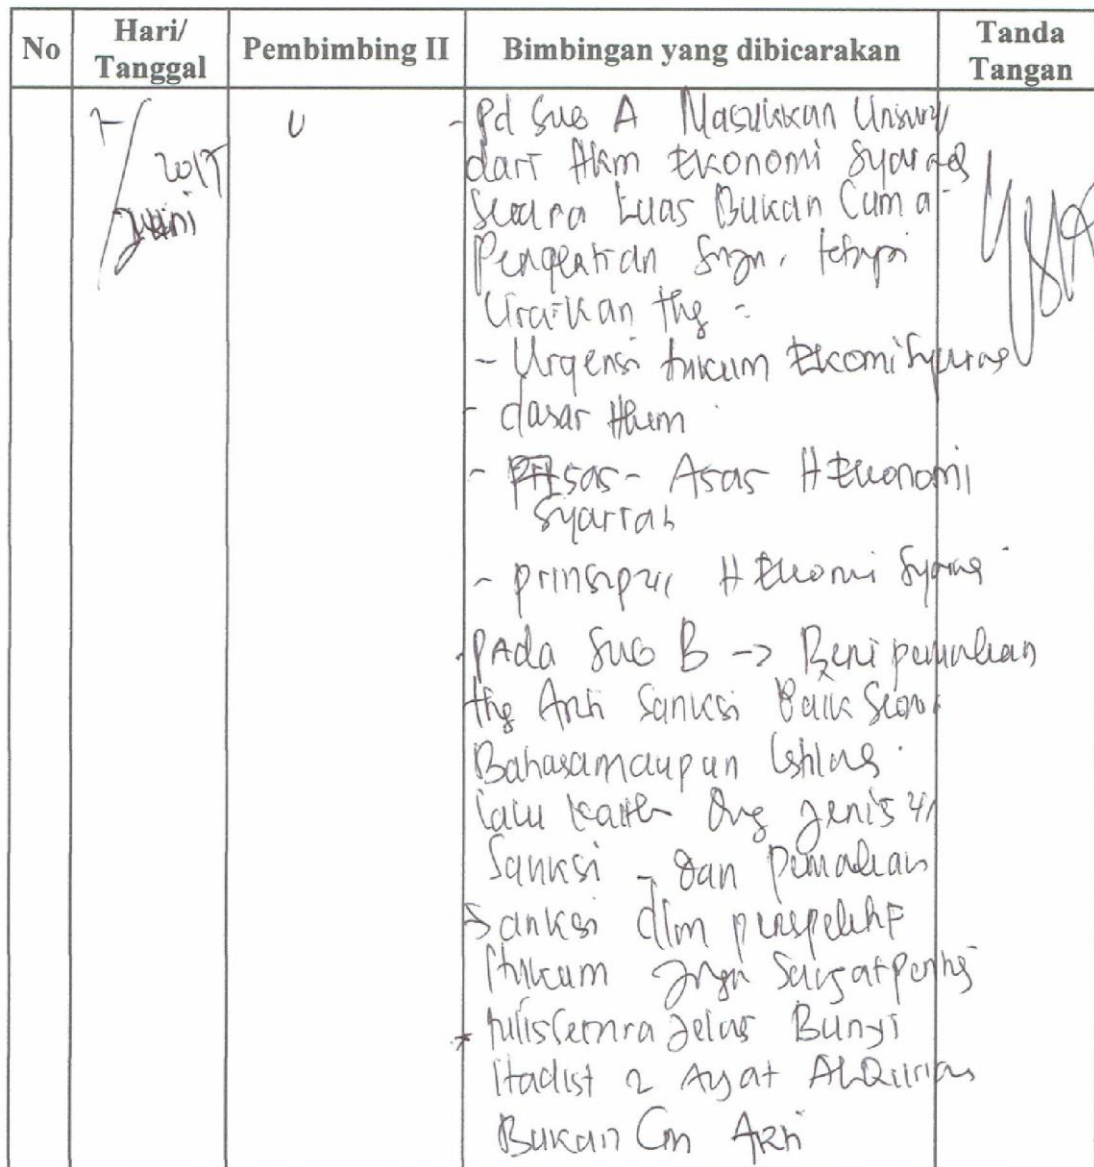 No Hari/ Tanggal Pembimbing II Bimbingan yang dibicarakan Tanda Tangan
7/ Juni 2017
- Pd Sub A Masukkan Unsur
dari Hkm Ekonomi Syariah
secara Luas Bukan Cuma
Pengertian, tetapi
Uraikan ttg :
- Urgensi Hukum Ekomi Syariah
- dasar Hkum
- Asas - Asas H Ekonomi
Syariah
- prinsip2 H Ekonomi Syariah
- pada Sub B -> Beri
ttg Arti Sanksi Baik secara
Bahasa maupun Istilah.
lalu jenis2
Sanksi - dan
Sanksi dlm perspektif
Hukum Juga Sangat penting
* tulis secara Jelas Bunyi
Hadist 2 Ayat AlQur'an
Bukan Cm Arti